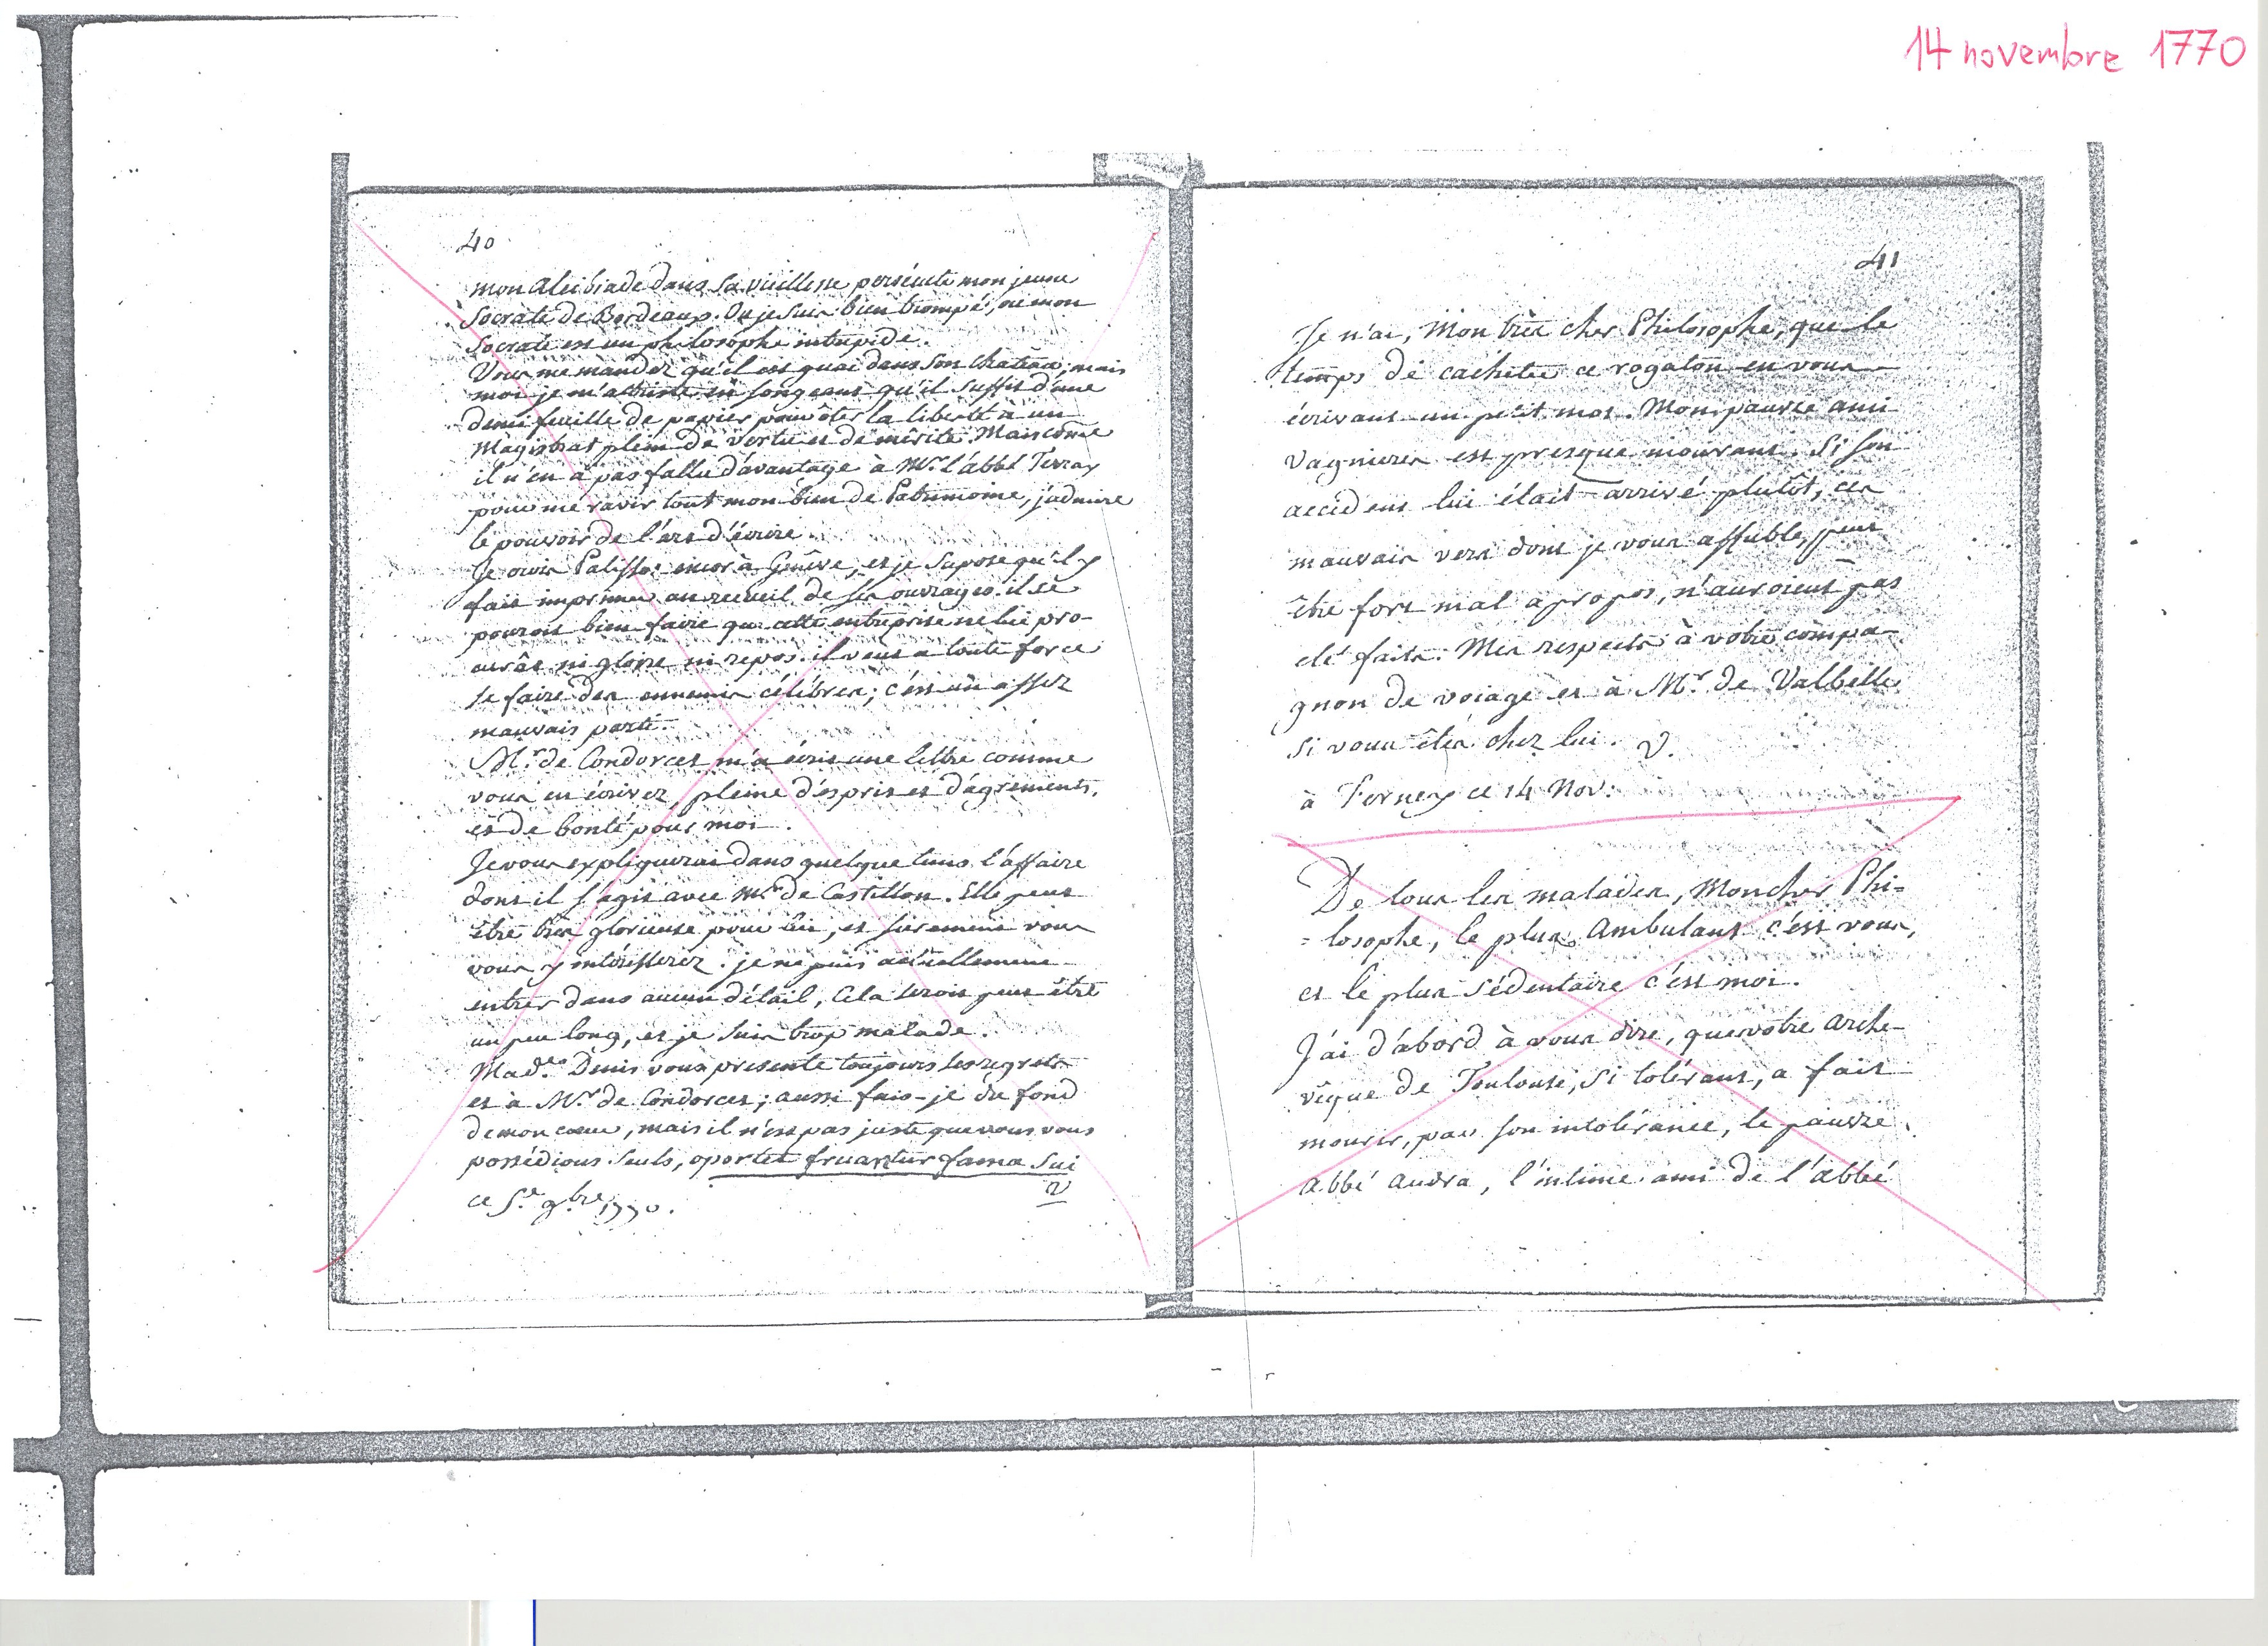 14 novembre 1770
40
mon Alcibiade dans sa vieillesse persécute mon jeune
Socrate de Bordeaux. Ou je suis bien trompé, ou mon
Socrate est un philosophe intrépide.
Vous me mandez qu'il est guai dans son chateau; mais
moi je m'attriste en songeant qu'il suffit d'une
demi feuille de papier pour ôter la liberté à un
Magistrat plein de vertu et de mérite. Mais come
il n'en a pas fallu d'avantage à Mr. l'abbé Terray
pour me ravir tout mon bien de Patrimoine, j'admire
le pouvoir de l'art d'écrire.
Je crois Palissot encor à Genêve, et je supose qu'il y
fait imprimer un recueil de ses ouvrages. il se
pouroit bien faire que cette entreprise ne lui pro-
curât ni gloire ni repos. il veut a toute force
se faire des ennemis célébres; c'est un assez
mauvais parti.
Mr. de Condorcet m'a écrit une lettre comme
vous en écrivez, pleine d'esprit et d'agréments,
et de bonté pour moi.
Je vous expliquerai dans quelque tems l'affaire
dont il s'agit avec Mr. de Castillon. Elle peut
être très glorieuse pour lui, et surement vous
vous y intéresserez. je ne puis actuellement
entrer dans aucun détail, Cela seroit peut être
un peu long, et je suis trop malade.
Made. Denis vous presente toujours ses regrets
et à Mr. de Condorcet; aussi fais-je du fond
de mon cœur, mais il n'est pas juste que nous vous
possédions seuls, oportet fruantur fama sui
V
ce 5e. 9bre. 1770.
41
Je n'ai, Mon très cher Philosophe, que le
temps de cacheter ce rogaton en vous
écrivant un petit mot. Mon pauvre ami
Vagnieres est presque mourant. Si son
accident lui était arrivé plutôt, ces
mauvais vers dont je vous affuble, peut
être fort mal apropos, n'auroient pas
été faits. Mes respects à votre compa-
gnon de voiage et à Mr. de Valbelle
si vous êtes chez lui. V.
à Ferney ce 14 Nov:
De tous les malades, Mon cher Phi=
=losophe, le plus Ambulant c'est vous,
et le plus sédentaire c'est moi.
J'ai d'abord à vous dire, que votre Arche-
vêque de Toulouse, si tolérant, a fait
mourir, par son intolérance, le pauvre
abbé Audra, l'intime ami de l'abbé